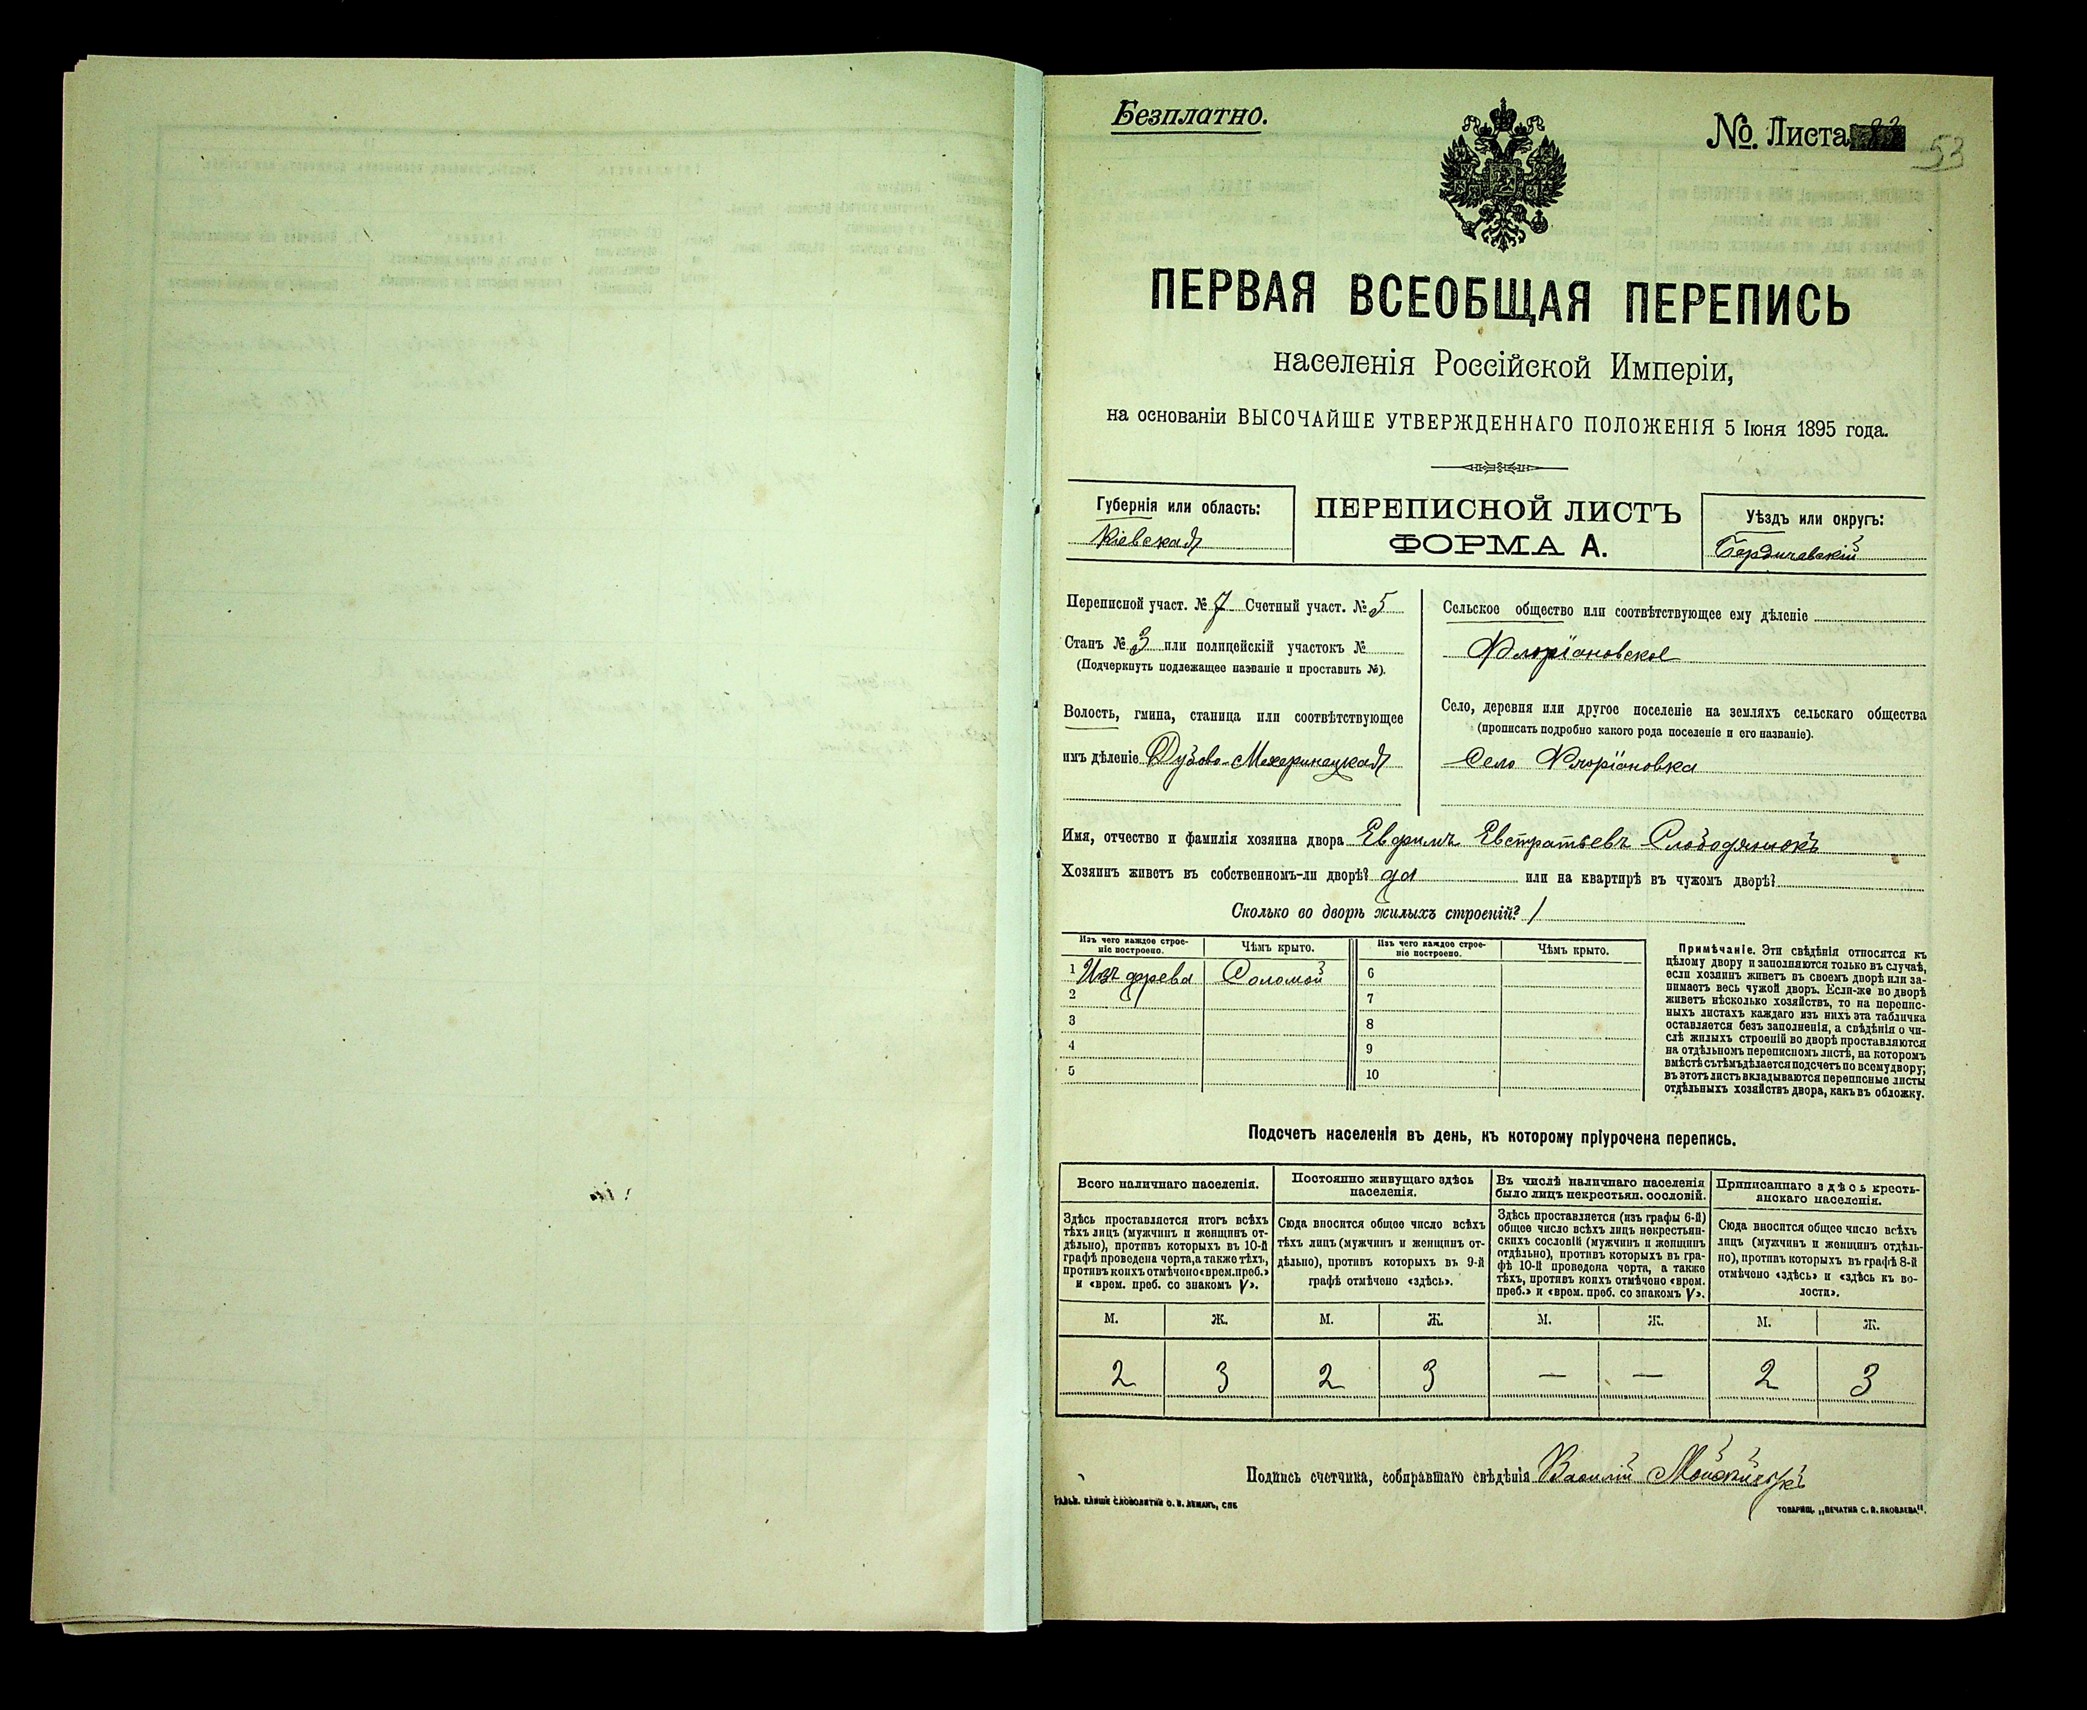 Безплатно.
№ Листа
53
ПЕРВАЯ ВСЕОБЩАЯ ПЕРЕПИСЬ
населенія Россійской Имперіи,
на основаніи ВЫСОЧАЙШЕ УТВЕРЖДЕННАГО ПОЛОЖЕНІЯ 5 Іюня 1895 года.
Губернія или область:
Кіевская
ПЕРЕПИСНОЙ ЛИСТЪ
ФОРМА А.
Уѣздъ или округъ:
Бердичевскій
Переписной участ. № 7 Счетный участ. № 5
Станъ № 3 или полицейскій участокъ №
(Подчеркнуть подлежащее названіе и проставить №).
Волость, гмина, станица или соотвѣтствующее
имъ дѣленіе Дубово-Махаринецкая
Сельское общество или соотвѣтствующее ему дѣленіе
Флоріановское
Село, деревня или другое поселеніе на земляхъ сельскаго общества
(прописать подробно какого рода поселеніе и его названіе).
Село Флоріановка
Имя, отчество и фамилія хозяина двора Евфимъ Евстратьевъ Слободянюкъ
Хозяинъ живетъ въ собственномъ-ли дворѣ? да или на квартирѣ въ чужомъ дворѣ?
Сколько во дворѣ жилыхъ строеній? 1
Изъ чего каждое строе-
ніе построено.
Чѣмъ крыто.
Изъ чего каждое строе-
ніе построено.
Чѣмъ крыто.
1 Изъ дерева Соломой 6
2 7
3 8
4 9
5 10
Примѣчаніе. Эти свѣдѣнія относятся къ
цѣлому двору и заполняются только въ случаѣ,
если хозяинъ живетъ въ своемъ дворѣ или за-
нимаетъ весь чужой дворъ. Если-же во дворѣ
живетъ нѣсколько хозяйствъ, то на перепис-
ныхъ листахъ каждаго изъ нихъ эта табличка
оставляется безъ заполненія, а свѣдѣнія о чи-
слѣ жилыхъ строеній во дворѣ проставляются
на отдѣльномъ переписномъ листѣ, на которомъ
вмѣстѣ съ тѣмъ дѣлается подсчетъ по всему двору;
въ этотъ листъ вкладываются переписные листы
отдѣльныхъ хозяйствъ двора, какъ въ обложку.
Подсчетъ населенія въ день, къ которому пріурочена перепись.
Всего наличнаго населенія.
Здѣсь проставляется итогъ всѣхъ
тѣхъ лицъ (мужчинъ и женщинъ от-
дѣльно), противъ которыхъ въ 10-й
графѣ проведена черта, а также тѣхъ,
противъ коихъ отмѣчено «врем. преб.»
и «врем. преб. со знакомъ V».
Постоянно живущаго здѣсь
населенія.
Сюда вносится общее число всѣхъ
тѣхъ лицъ (мужчинъ и женщинъ от-
дѣльно), противъ которыхъ въ 9-й
графѣ отмѣчено «здѣсь».
Въ числѣ наличнаго населенія
было лицъ некрестьян. сословій.
Здѣсь проставляется (изъ графы 6-й)
общее число всѣхъ лицъ некрестьян-
скихъ сословій (мужчинъ и женщинъ
отдѣльно), противъ которыхъ въ гра-
фѣ 10-й проведена черта, а также
тѣхъ, противъ коихъ отмѣчено «врем.
преб.» и «врем. преб. со знакомъ V».
Приписаннаго здѣсь кресть-
янскаго населенія.
Сюда вносится общее число всѣхъ
лицъ (мужчинъ и женщинъ отдѣль-
но), противъ которыхъ въ графѣ 8-й
отмѣчено «здѣсь» и «здѣсь къ во-
лости».
М. Ж. М. Ж. М. Ж. М. Ж.
2 3 2 3 — — 2 3
Подпись счетчика, собиравшаго свѣдѣнія Василій
ГАЛЬВ. КЛИШЕ СЛОВОЛИТНИ О. И. ЛЕМАНЪ, СПБ
ТОВАРИЩ. „ПЕЧАТНЯ С. П. ЯКОВЛЕВА".